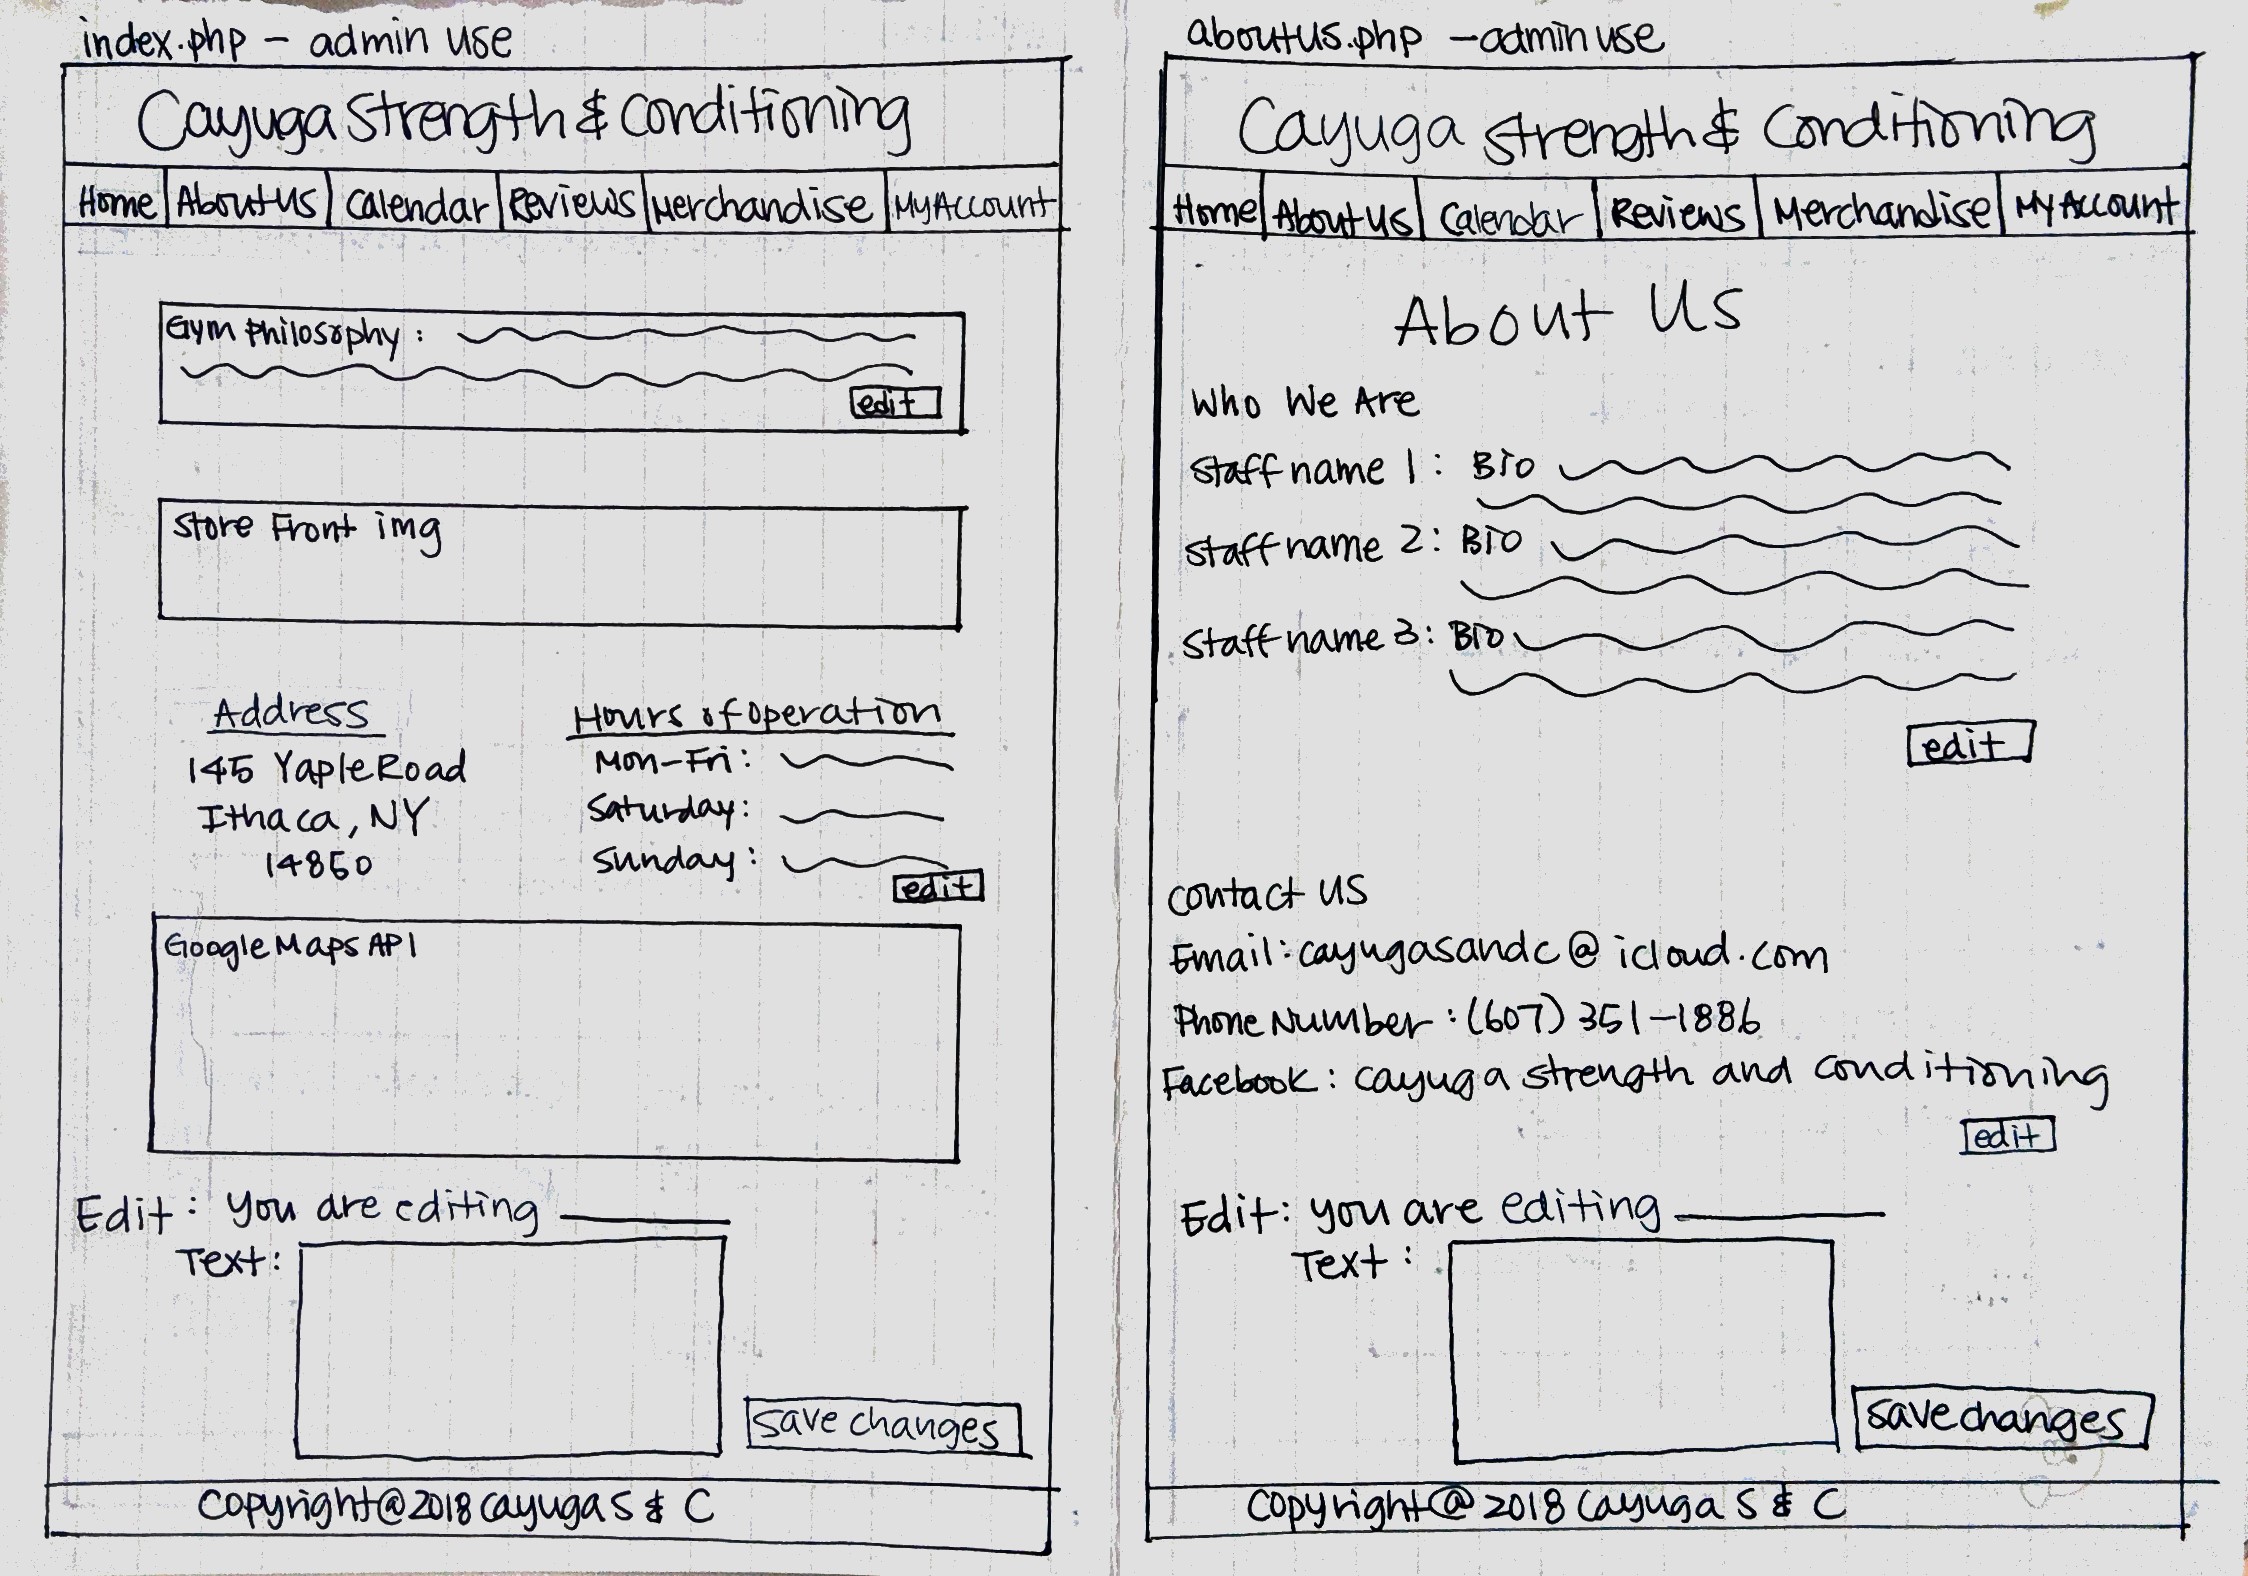 index.php - admin use
Cayuga Strength & Conditioning
Home About Us Calendar Reviews Merchandise My Account
Gym Philosophy :
edit
Store Front img
Address
145 Yaple Road
Ithaca, NY
14850
Hours of Operation
Mon-Fri:
Saturday:
Sunday:
edit
Google Maps API
Edit: You are editing
Text:
save changes
Copyright@2018 Cayuga S & C
aboutus.php - admin use
Cayuga Strength & Conditioning
Home About Us Calendar Reviews Merchandise My Account
About Us
Who We Are
Staff name 1: Bio
Staff name 2: Bio
Staff name 3: Bio
edit
Contact US
Email: cayugasandc@icloud.com
Phone Number: (607) 351-1886
Facebook: cayuga strength and conditioning
edit
Edit: you are editing
Text:
save changes
Copyright@ 2018 Cayuga S & C